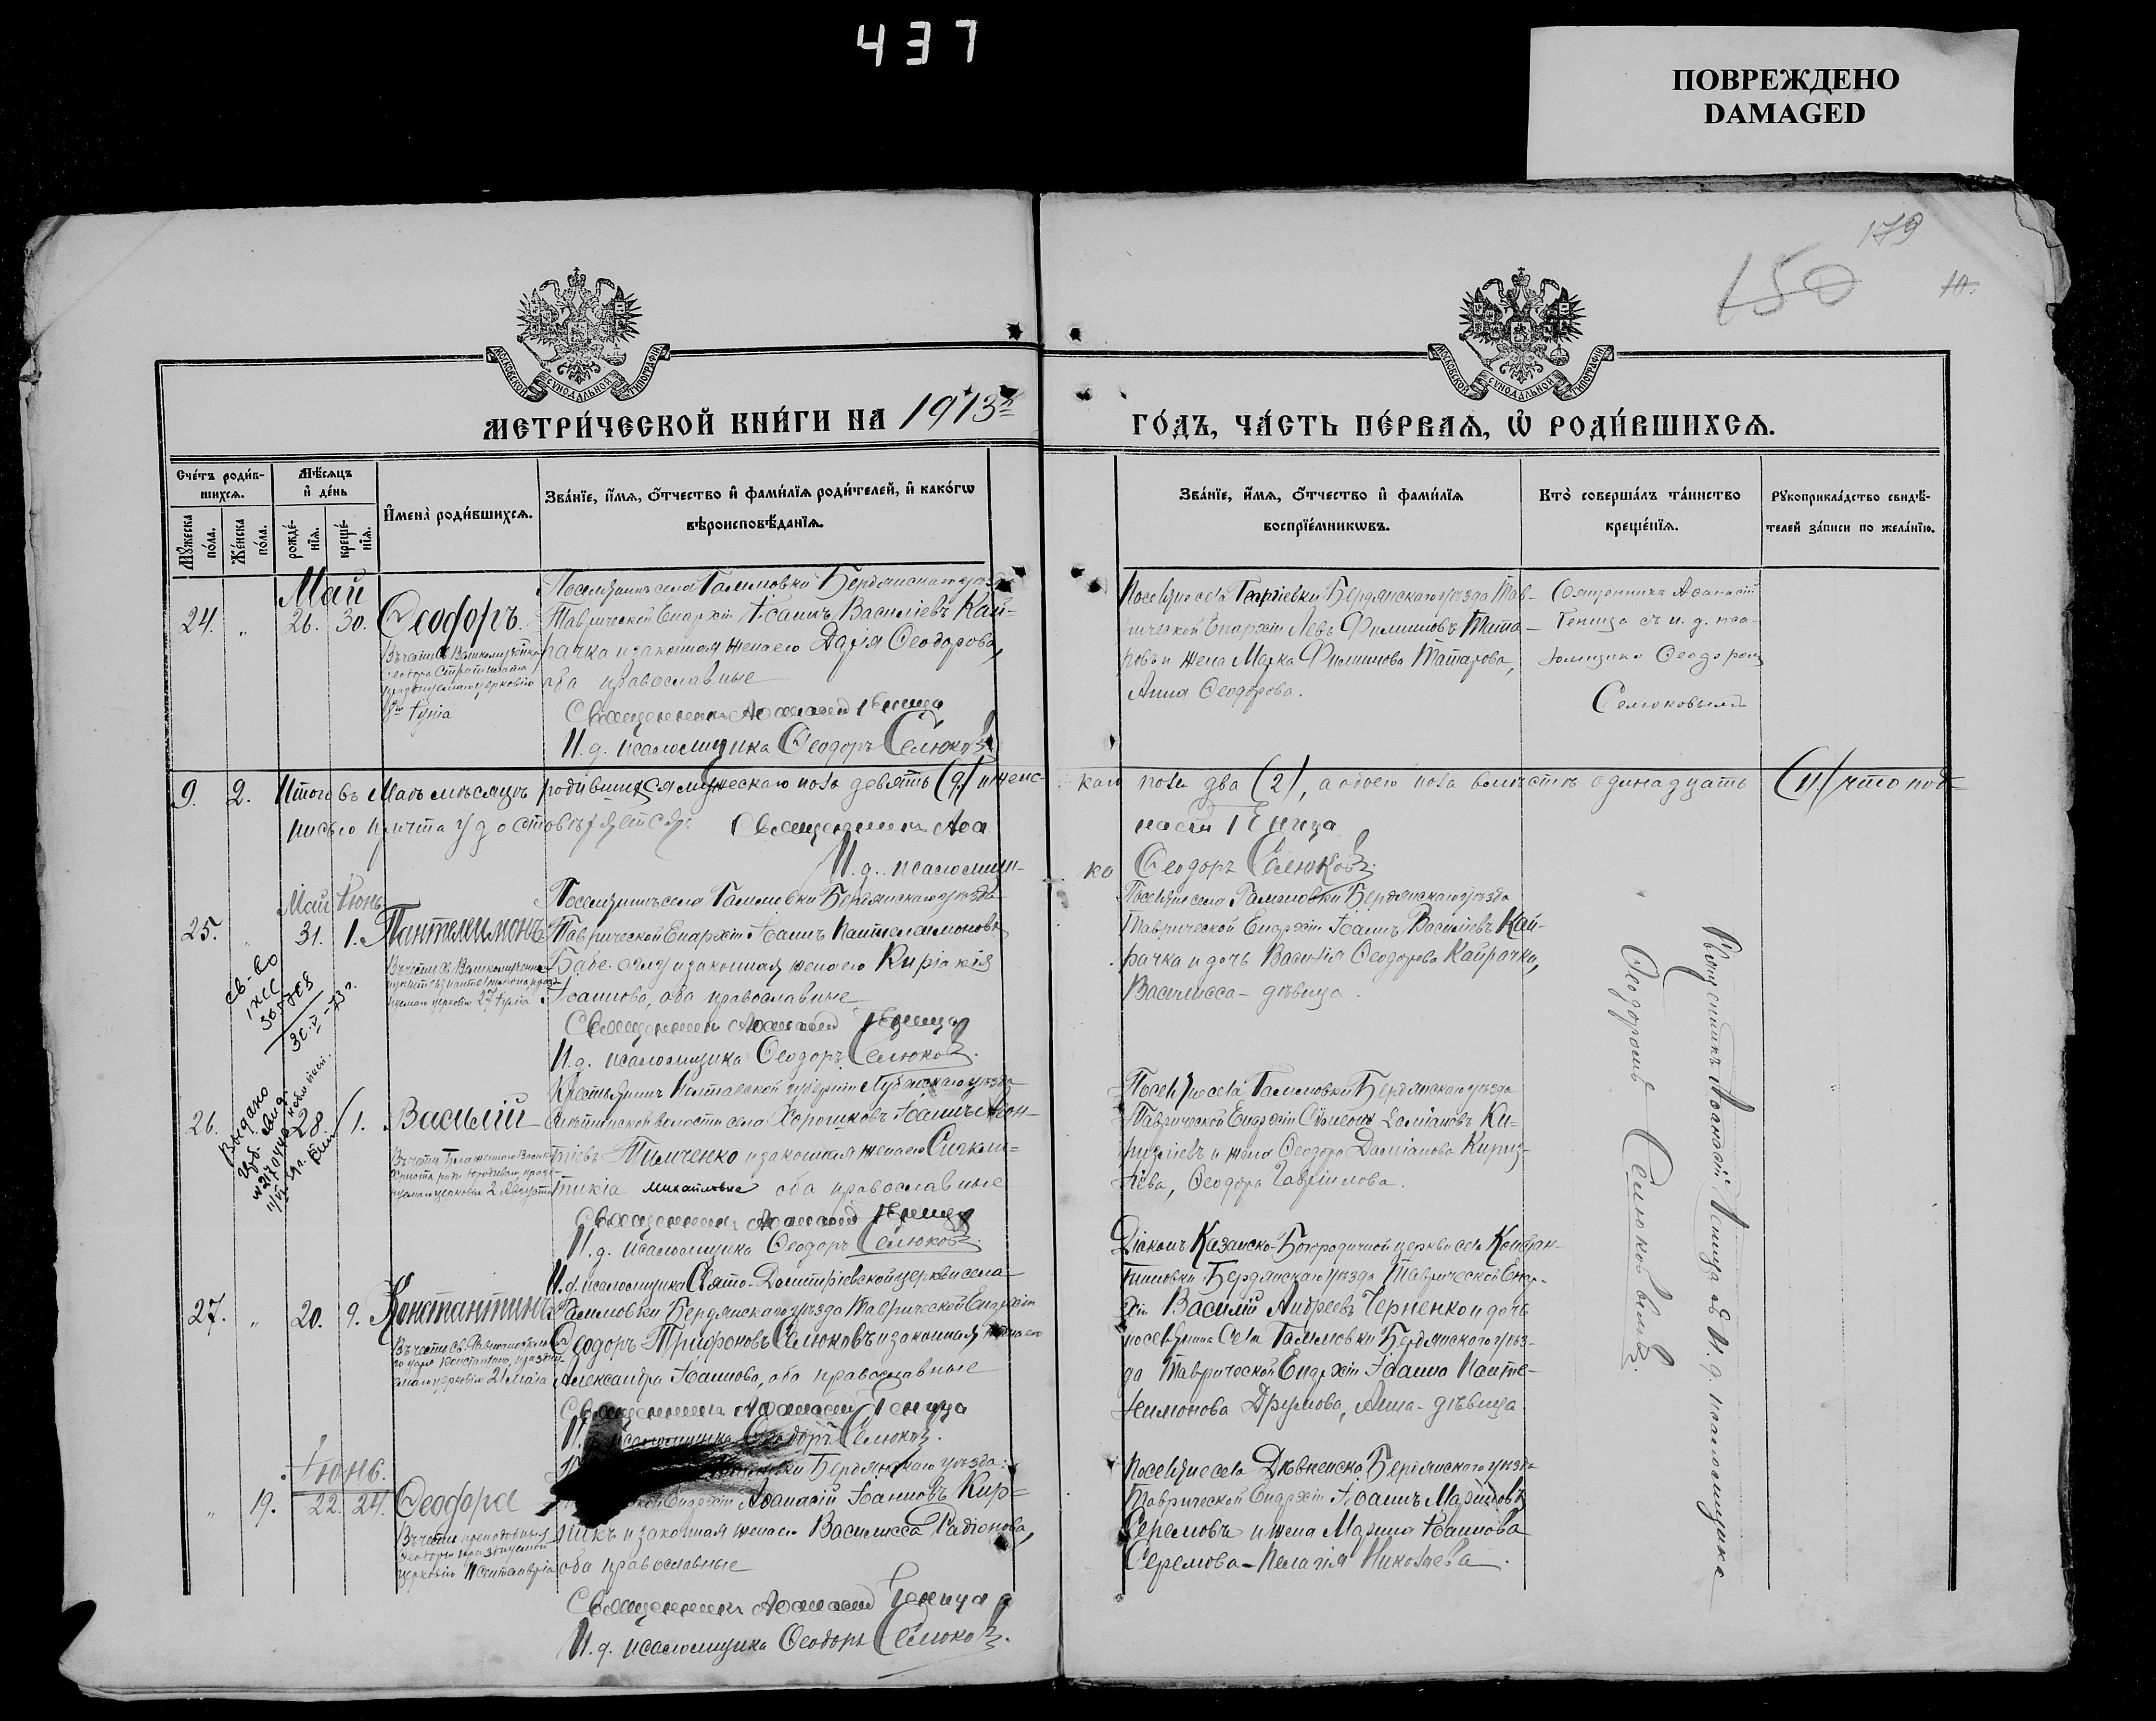 437
ПОВРЕЖДЕНО
DAMAGED
179
150
10.
МОСКОВСКОЙ СѴНОДАЛЬНОЙ ТИПОГРАФІИ
МОСКОВСКОЙ СѴНОДАЛЬНОЙ ТИПОГРАФІИ
МЕТРИ́ЧЕСКОЙ КНИ́ГИ НА 1913й
ГО́ДЪ, ЧА́СТЬ ПЕ́РВАЯ, Ѽ РОДИ́ВШИХСЯ.
Сче́тъ роди́в-
шихся.
Мꙋ́жеска по́ла.
Же́нска по́ла.
Мѣ́сяцъ и҆ де́нь
рожде́-
нїя.
креще́-
нїя.
И҆мена̀ роди́вшихся.
Зва́нїе, и҆́мя, ѻ҆́тчество и҆ фами́лїя роди́телей, и҆ како́гѡ
вѣроисповѣ́данїя.
Зва́нїе, и҆́мя, ѻ҆́тчество и҆ фами́лїя
воспрїе́мникѡвъ.
Кто̀ соверша́лъ та́инство
креще́нїя.
Рꙋкоприкла́дство свидѣ́-
телей за́писи по жела́нїю.
Май
24. „ 26. 30. Ѳеодоръ
Въ честь Св. Великомученика
Ѳеодора Стратилата
празднуемаго церковію
8го Іуня
Поселянинъ села Галимовки Бердянскаго уѣзда
Таврической Епархіи Іоаннъ Василіевъ Кай-
рачка и законная жена его Дарія Ѳеодорова,
оба православные
Священникъ Аѳанасій Геница
И.д. псаломщика Ѳеодоръ Селюковъ
Поселянинъ села Георгіевки Бердянскаго уѣзда Тав-
рической Епархіи Левъ Филиповъ Тата-
ровъ и жена Марка Филипова Татарова,
Анна Ѳеодорова.
Священникъ Аѳанасій
Геница съ и. д. пса-
ломщика Ѳеодоромъ
Селюковымъ
9. 2. Итого въ Маѣ мѣсяцѣ родившихся мужескаго пола девять (9) и женс-
каго пола два (2), а обоего пола вмѣстѣ одинадцать (11) что под-
писью причта удостовѣряется: Священникъ Аѳа
насій Геница
И.д. псаломщи-
ка Ѳеодоръ Селюковъ.
Май Іюнь
25. „ 31. 1. Пантелеимонъ
Въ честь Св. Великомученика
и цѣлителя Пантелеимона, празд-
нуемаго церковію 27 Іулія
Поселянинъ села Галимовки Бердянскаго уѣзда
Таврической Епархіи Іоаннъ Пантелеимоновъ
и законная жена его Киріакія
Іоаннова, оба православные
Священникъ Аѳанасій Геница
И.д. псаломщика Ѳеодоръ Селюковъ.
Поселянинъ села Галимовки Бердянскаго уѣзда
Таврической Епархіи Іоаннъ Василіевъ Кай-
рачка и дочь Василія Ѳеодорова Кайрачка,
Василисса - дѣвица.
св-во
26. 28. 1. Василій
Выдано
Въ честь Блаженнаго Василія
Христа ради Юродиваго, празд-
нуемаго церковію 2 Августа
Крестьянинъ Полтавской губерніи Лубенскаго уѣзда
волости села Хорошковъ Іоаннъ Леон-
тіевъ Тимченко и законная жена его Сѵнкли-
тикія Михайловна оба православные
Священникъ Аѳанасій Геница
И.д. псаломщика Ѳеодоръ Селюковъ.
Поселянинъ села Галимовки Бердянскаго уѣзда
Таврической Епархіи Сѵмеонъ Даміановъ Ки-
ризліевъ и жена Ѳеодора Даміанова Кириз-
лієва, Ѳеодора Гавріилова.
27. „ 20. 9. Константинъ
Въ честь Св. Равноапостольна-
го царя Константина, праздну-
емаго церковію 21 Маія
И.д. псаломщика Свято-Димитріевской церкви села
Галимовки Бердянскаго уѣзда Таврической Епархіи
Ѳеодоръ Трифоновъ Селюковъ и законная жена его
Александра Іоаннова, оба православные
Священникъ Аѳанасій Геница
И.д. псаломщика Ѳеодоръ Селюковъ.
Діаконъ Казанско-Богородичной церкви села Констан-
тиновки Бердянскаго уѣзда Таврической Епар-
хіи Василій Андреевъ Черненко и дочь
поселянина села Галимовки Бердянскаго уѣз-
да Таврической Епархіи Іоанна Панте-
лимонова Друмова, Анна - дѣвица.
Священникъ Аѳанасій Геница съ И.д. псаломщика
Ѳеодоромъ Селюковымъ.
Іюнь.
„ 19. 22. 24. Ѳеодора
Въ честь преподобныя
Ѳеодоры празднуемой
церковію 11 Сентабрія
Бердянскаго уѣзда
Епархіи Аѳанасій Іоанновъ Кир-
ликъ и законная жена его Василисса Радіонова,
оба православные
Священникъ Аѳанасій Геница
И.д. псаломщика Ѳеодоръ Селюковъ.
Поселянинъ села Дѣвненска Бердянскаго уѣзда
Таврической Епархіи Іоаннъ Мариновъ
Серемовъ и жена Марина Іоаннова
Серемова - Пелагія Николаева.